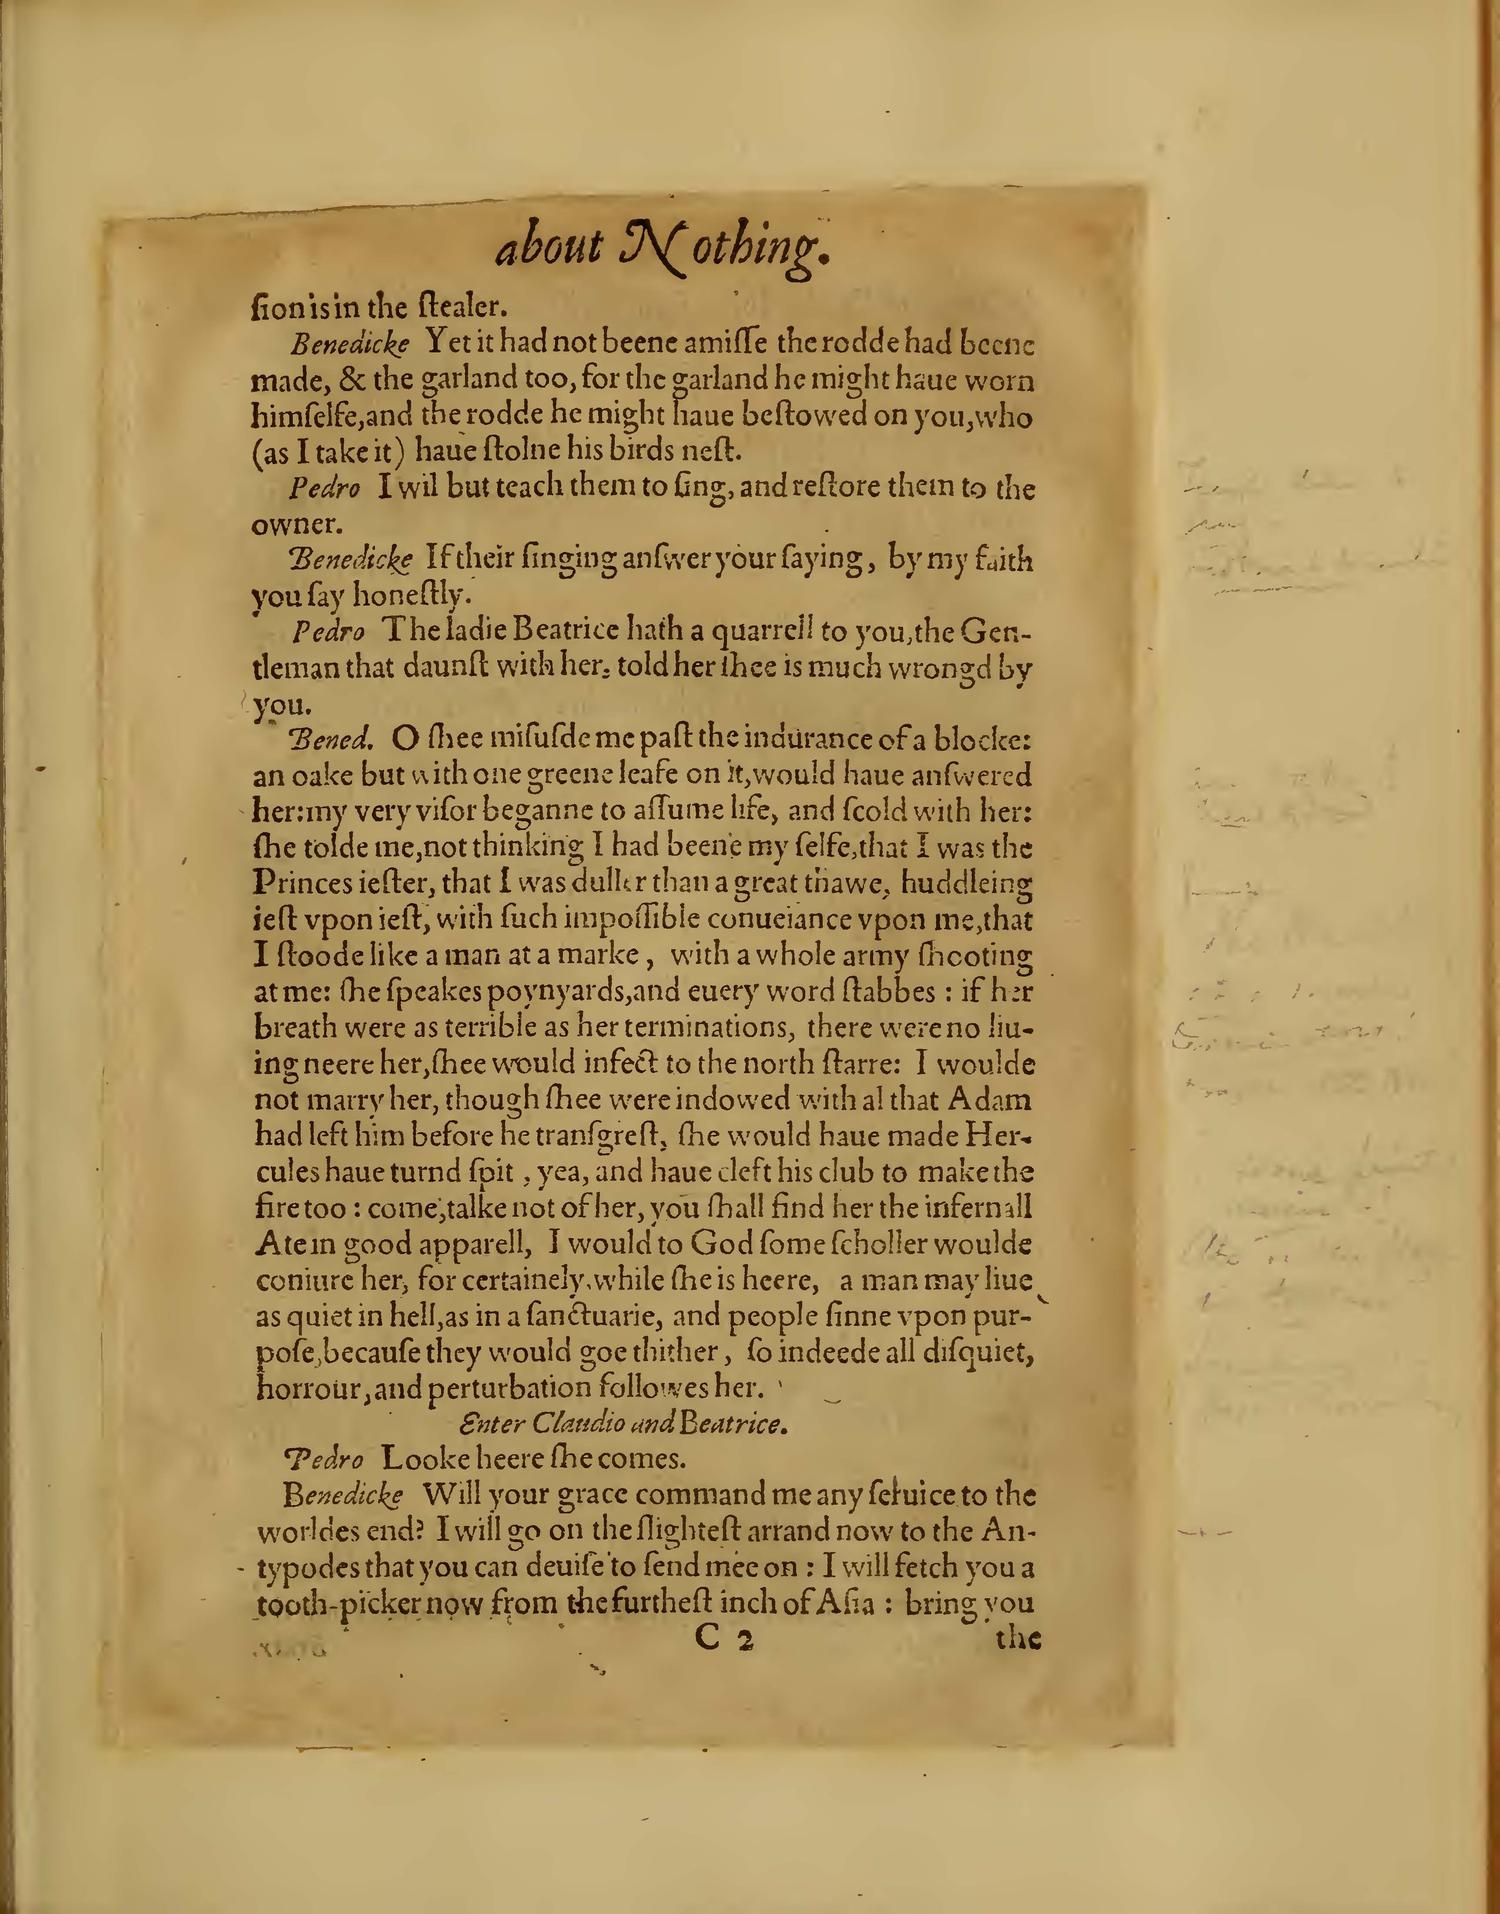 about Nothing.
ſion is in the ſtealer.
Benedicke Yet it had not beene amiſſe the rodde had beene
made, & the garland too, for the garland he might haue worn
himſelfe, and the rodde he might haue beſtowed on you, who
(as I take it) haue ſtolne his birds neſt.
Pedro I wil but teach them to ſing, and reſtore them to the
owner.
Benedicke If their ſinging anſwer your ſaying, by my faith
you ſay honeſtly.
Pedro The ladie Beatrice hath a quarrell to you, the Gen-
tleman that daunſt with her, told her ſhee is much wrongd by
you.
Bened. O ſhee miſuſde me paſt the indurance of a blocke:
an oake but with one greene leafe on it, would haue anſwered
her: my very viſor beganne to aſſume life, and ſcold with her:
ſhe tolde me, not thinking I had beene my ſelfe, that I was the
Princes ieſter, that I was duller than a great thawe, huddleing
ieſt vpon ieſt, with ſuch impoſſible conueiance vpon me, that
I ſtoode like a man at a marke, with a whole army ſhooting
at me: ſhe ſpeakes poynyards, and euery word ſtabbes : if her
breath were as terrible as her terminations, there were no liu-
ing neere her, ſhee would infect to the north ſtarre: I woulde
not marry her, though ſhee were indowed with al that Adam
had left him before he tranſgreſt, ſhe would haue made Her-
cules haue turnd ſpit, yea, and haue cleft his club to make the
fire too : come, talke not of her, you ſhall find her the infernall
Ate in good apparell, I would to God ſome ſcholler woulde
coniure her, for certainely, while ſhe is heere, a man may liue
as quiet in hell, as in a ſanctuarie, and people ſinne vpon pur-
poſe, becauſe they would goe thither, ſo indeede all diſquiet,
horrour, and perturbation followes her.
Enter Claudio and Beatrice.
Pedro Looke heere ſhe comes.
Benedicke Will your grace command me any ſeruice to the
worldes end? I will go on the ſlighteſt arrand now to the An-
typodes that you can deuiſe to ſend mee on : I will fetch you a
tooth-picker now from the furtheſt inch of Aſia : bring you
C 2 the